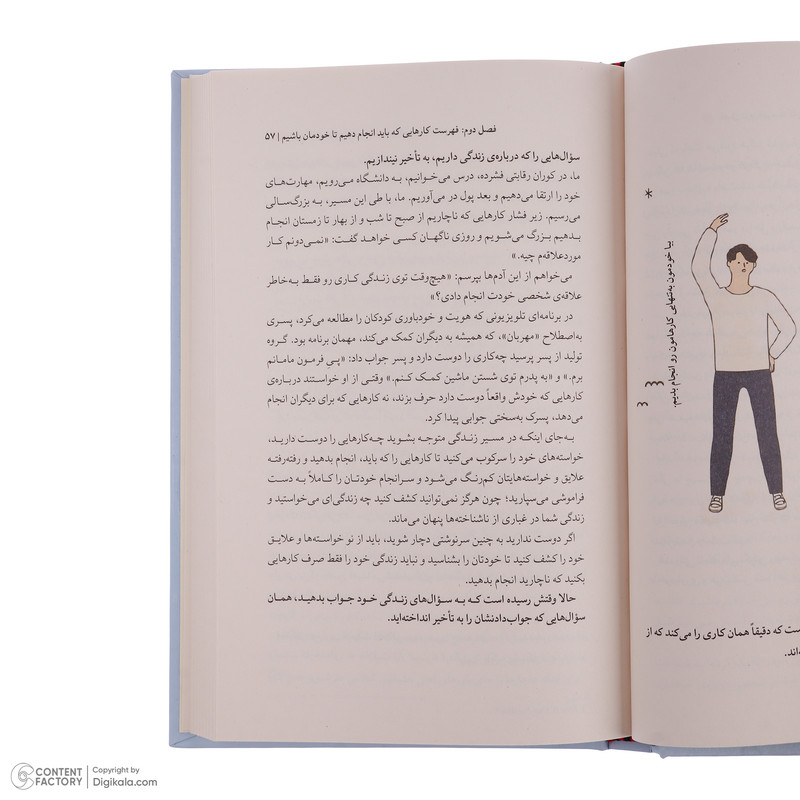 فصل دوم: فهرست کارهایی که باید انجام دهیم تا خودمان باشیم | ۵۷
سؤال‌هایی را که درباره‌ی زندگی داریم، به تأخیر نیندازیم.
ما، در کوران رقابتی فشرده، درس می‌خوانیم، به دانشگاه می‌رویم، مهارت‌های
خود را ارتقا می‌دهیم و بعد پول در می‌آوریم. ما، با طی این مسیر، به بزرگ‌سالی
می‌رسیم. زیر فشار کارهایی که ناچاریم از صبح تا شب و از بهار تا زمستان انجام
بدهیم بزرگ می‌شویم و روزی ناگهان کسی خواهد گفت: «نمی‌دونم کار
موردعلاقه‌م چیه.»
می‌خواهم از این آدم‌ها بپرسم: «هیچ‌وقت توی زندگی کاری رو فقط به‌خاطر
علاقه‌ی شخصی خودت انجام دادی؟»
در برنامه‌ای تلویزیونی که هویت و خودباوری کودکان را مطالعه می‌کرد، پسری
به‌اصطلاح «مهربان»، که همیشه به دیگران کمک می‌کند، مهمان برنامه بود. گروه
تولید از پسر پرسید چه‌کاری را دوست دارد و پسر جواب داد: «پی فرمون مامانم
برم.» و «به پدرم توی شستن ماشین کمک کنم.» وقتی از او خواستند درباره‌ی
کارهایی که خودش واقعاً دوست دارد حرف بزند، نه کارهایی که برای دیگران انجام
می‌دهد، پسرک به‌سختی جوابی پیدا کرد.
به‌جای اینکه در مسیر زندگی متوجه بشوید چه‌کارهایی را دوست دارید،
خواسته‌های خود را سرکوب می‌کنید تا کارهایی را که باید، انجام بدهید و رفته‌رفته
علایق و خواسته‌هایتان کم‌رنگ می‌شود و سرانجام خودتان را کاملاً به دست
فراموشی می‌سپارید؛ چون هرگز نمی‌توانید کشف کنید چه زندگی‌ای می‌خواستید و
زندگی شما در غباری از ناشناخته‌ها پنهان می‌ماند.
اگر دوست ندارید به چنین سرنوشتی دچار شوید، باید از نو خواسته‌ها و علایق
خود را کشف کنید تا خودتان را بشناسید و نباید زندگی خود را فقط صرف کارهایی
بکنید که ناچارید انجام بدهید.
حالا وقتش رسیده است که به سؤال‌های زندگی خود جواب بدهید، همان
سؤال‌هایی که جواب‌دادنشان را به تأخیر انداخته‌اید.
*
بیا خودمون به‌تنهایی کارهامون رو انجام بدیم.
ست که دقیقاً همان کاری را می‌کند که از
‌اند.
CONTENT FACTORY
Copyright by
Digikala.com